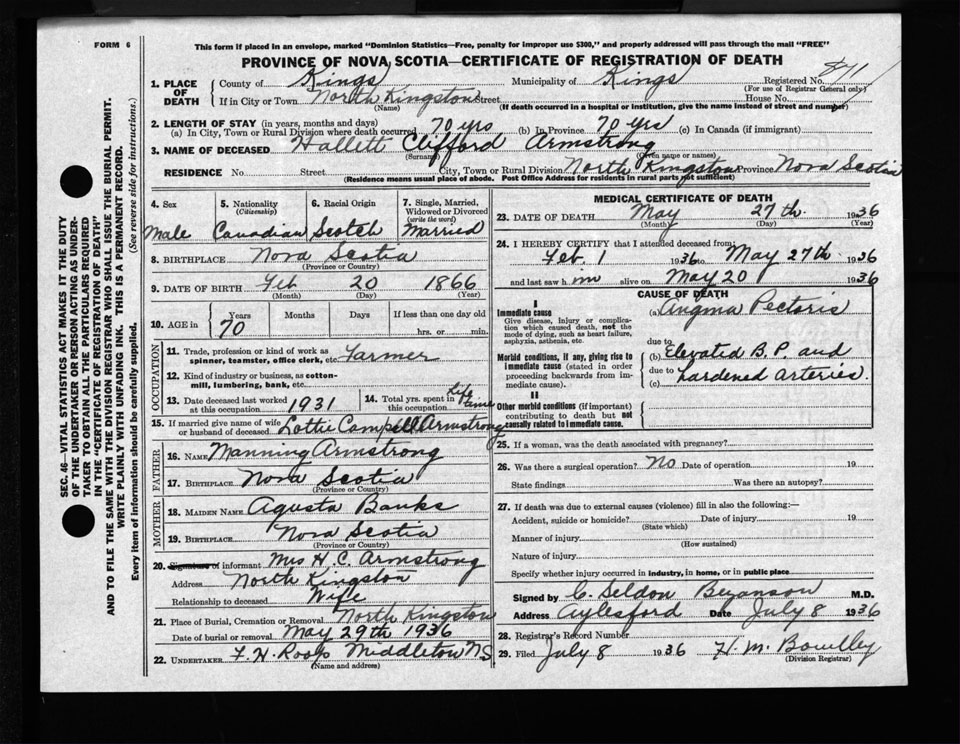 FORM 6
This form if placed in an envelope, marked "Dominion Statistics—Free, penalty for improper use $300," and properly addressed will pass through the mail "FREE"
PROVINCE OF NOVA SCOTIA—CERTIFICATE OF REGISTRATION OF DEATH
1. PLACE OF DEATH
County of Kings Municipality of Kings Registered No.
(For use of Registrar General only)
If in City or Town North Kingston Street House No.
(Name) (If death occurred in a hospital or institution, give the name instead of street and number)
2. LENGTH OF STAY (in years, months and days)
(a) In City, Town or Rural Division where death occurred 70 yrs (b) In Province 70 yrs (c) In Canada (if immigrant)
3. NAME OF DECEASED Hallett Clifford Armstrong
(Surname) (Given name or names)
RESIDENCE No. Street City, Town or Rural Division North Kingston Province Nova Scotia
(Residence means usual place of abode. Post Office Address for residents in rural parts not sufficient)
4. Sex
Male
5. Nationality
(Citizenship)
Canadian
6. Racial Origin
Scotch
7. Single, Married, Widowed or Divorced
(write the word)
Married
8. BIRTHPLACE Nova Scotia
(Province or Country)
9. DATE OF BIRTH Feb 20 1866
(Month) (Day) (Year)
10. AGE in Years Months Days If less than one day old
70 hrs. or min.
OCCUPATION
11. Trade, profession or kind of work as spinner, teamster, office clerk, etc. Farmer
12. Kind of industry or business, as cotton-mill, lumbering, bank, etc.
13. Date deceased last worked at this occupation 1931
14. Total yrs. spent in this occupation Life time
15. If married give name of wife or husband of deceased Lottie Campell Armstrong
FATHER
16. NAME Manning Armstrong
17. BIRTHPLACE Nova Scotia
(Province or Country)
MOTHER
18. MAIDEN NAME Agusta Banks
19. BIRTHPLACE Nova Scotia
(Province or Country)
20. Signature of informant Mrs H. C. Armstrong
Address North Kingston
Relationship to deceased Wife
21. Place of Burial, Cremation or Removal North Kingston
Date of burial or removal May 29th 1936
22. UNDERTAKER F. H. Roop Middleton NS
(Name and address)
MEDICAL CERTIFICATE OF DEATH
23. DATE OF DEATH May 27th 1936
(Month) (Day) (Year)
24. I HEREBY CERTIFY that I attended deceased from:
Feb. 1 1936 to May 27th 1936
and last saw him alive on May 20 1936
CAUSE OF DEATH
I
Immediate cause
Give disease, injury or complication which caused death, not the mode of dying, such as heart failure, asphyxia, asthenia, etc.
(a) Angina Pectoris
due to
Morbid conditions, if any, giving rise to immediate cause (stated in order proceeding backwards from immediate cause).
(b) Elevated B.P. and
due to hardened arteries.
(c)
II
Other morbid conditions (if important) contributing to death but not causally related to immediate cause.
25. If a woman, was the death associated with pregnancy?
26. Was there a surgical operation? No Date of operation 19
State findings Was there an autopsy?
27. If death was due to external causes (violence) fill in also the following:—
Accident, suicide or homicide? Date of injury 19
(State which)
Manner of injury
(How sustained)
Nature of injury
Specify whether injury occurred in industry, in home, or in public place
Signed by C. Seldon Bezanson M.D.
Address Aylesford Date July 8 1936
28. Registrar's Record Number
29. Filed July 8 1936 H. M.
(Division Registrar)
SEC. 46—VITAL STATISTICS ACT MAKES IT THE DUTY
OF THE UNDERTAKER OR PERSON ACTING AS UNDERTAKER TO OBTAIN ALL THE PARTICULARS REQUIRED
IN THE "CERTIFICATE OF REGISTRATION OF DEATH"
AND TO FILE THE SAME WITH THE DIVISION REGISTRAR WHO SHALL ISSUE THE BURIAL PERMIT.
WRITE PLAINLY WITH UNFADING INK. THIS IS A PERMANENT RECORD.
Every item of information should be carefully supplied. (See reverse side for instructions.)